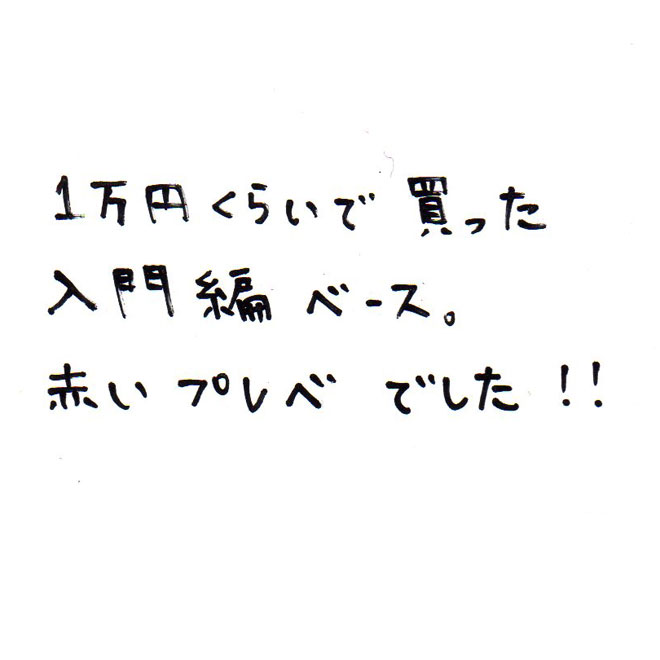 1万円くらいで 買った
入門編 ベース。
赤い プレベ でした!!